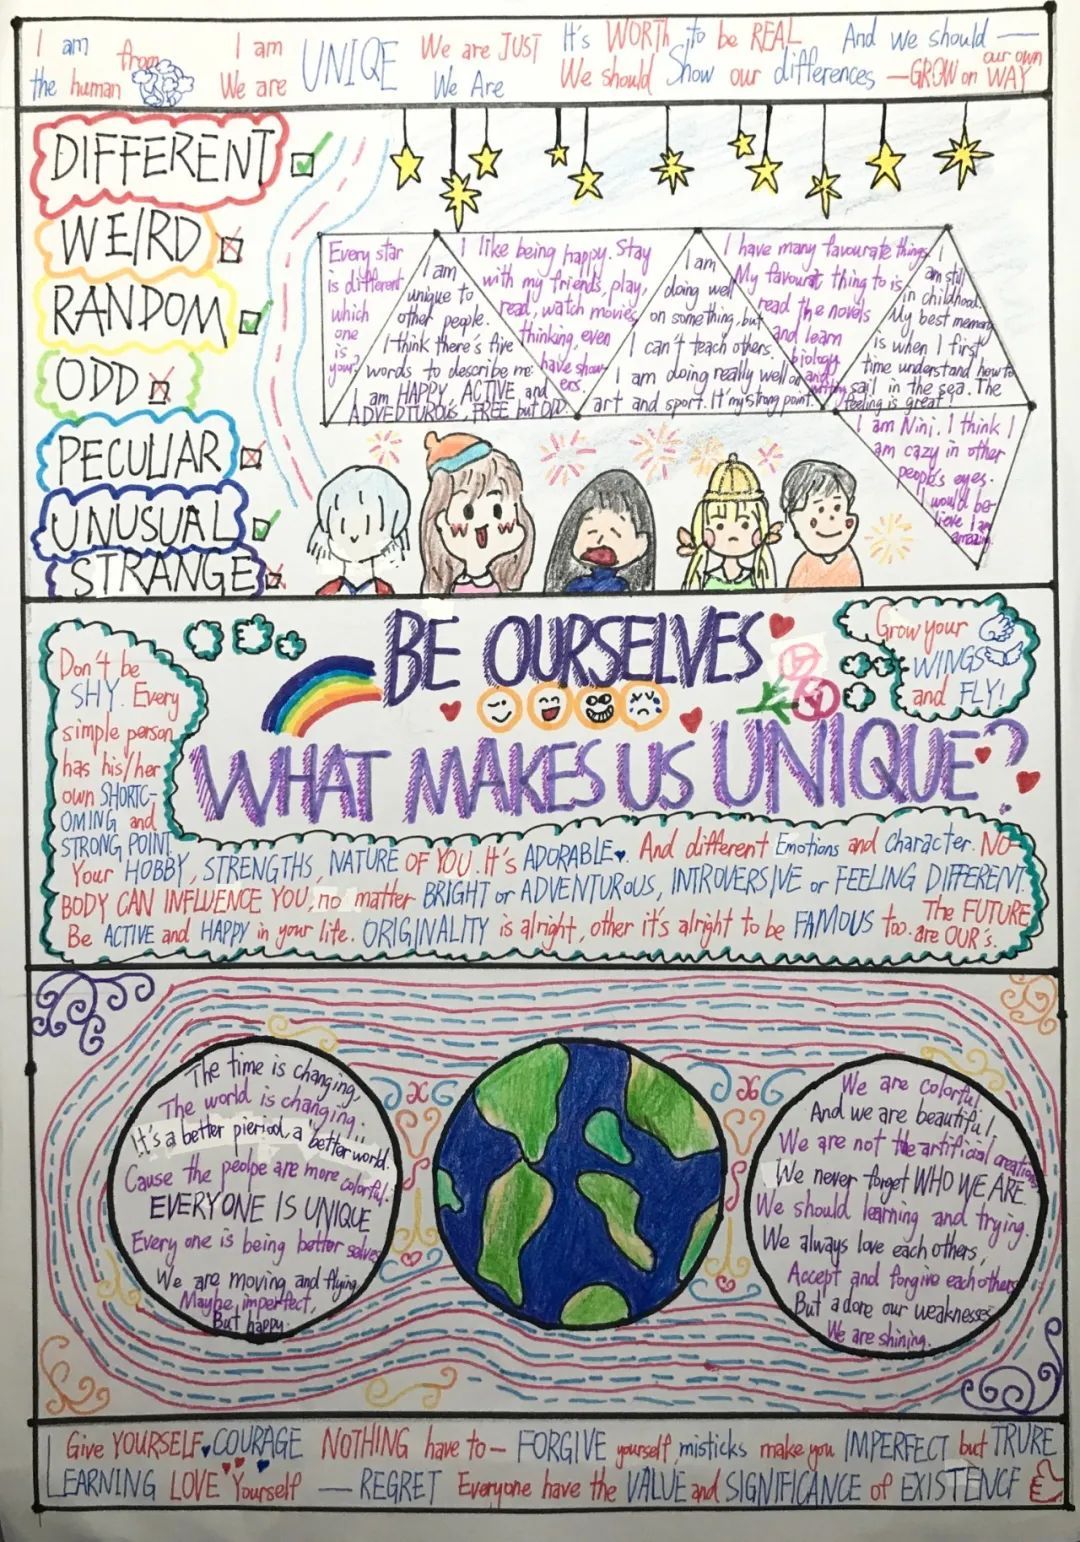 I am from
the human
I am
We are
UNIQE
We are JUST
We Are
It's WORTH to be REAL
We should Show our differences
And we should —
—GROW on our own WAY
DIFFERENT
WEIRD
RANDOM
ODD
PECULIAR
UNUSUAL
STRANGE
Every star
is different
which
one
is
your?
I am
unique to
other people.
I think there's five
words to describe me:
I am HAPPY, ACTIVE and
ADVEDTUROUS, FREE but ODD.
I like being happy. Stay
with my friends, play,
read, watch movies,
thinking, even
have show-
ers.
I am
doing well
on something, but
I can't teach others.
I am doing really well on
art and sport. It's my strong point.
I have many favourate things
My favourat thing to is
read the novels
and learn
biology
and
writing
I
am still
in childhood.
My best memory
is when I first
time understand how to
sail in the sea. The
feeling is great!
I am Nini. I think I
am cazy in other
people's eyes.
I would be-
lieve I am
amazing.
BE OURSELVES
WHAT MAKES US UNIQUE?
Grow your
WINGS
and FLY!
Don't be
SHY. Every
simple person
has his/her
own SHORTC-
OMING and
STRONG POINT.
Your HOBBY, STRENGTHS, NATURE OF YOU. It's ADORABLE. And different Emotions and Character. NO-
BODY CAN INFLUENCE YOU, no matter BRIGHT or ADVENTUROUS, INTROVERSIVE or FEELING DIFFERENT.
Be ACTIVE and HAPPY in your life. ORIGINALITY is alright, other it's alright to be FAMOUS too. The FUTURE are OUR's.
The time is changing,
The world is changing.
It's a better pieriod, a better world.
Cause the peolpe are more colorful.
EVERYONE IS UNIQUE
Every one is being better selves
We are moving and flying
Maybe imperfect,
But happy.
We are colorful
And we are beautiful
We are not the artificial creations
We never forget WHO WE ARE
We should learning and trying.
We always love each others,
Accept and forgive each others
But adore our weaknesses
We are shining.
Give YOURSELF COURAGE NOTHING have to— FORGIVE yourself, misticks make you IMPERFECT but TRURE
LEARNING LOVE Yourself — REGRET Everyone have the VALUE and SIGNIFICANCE of EXISTENCE